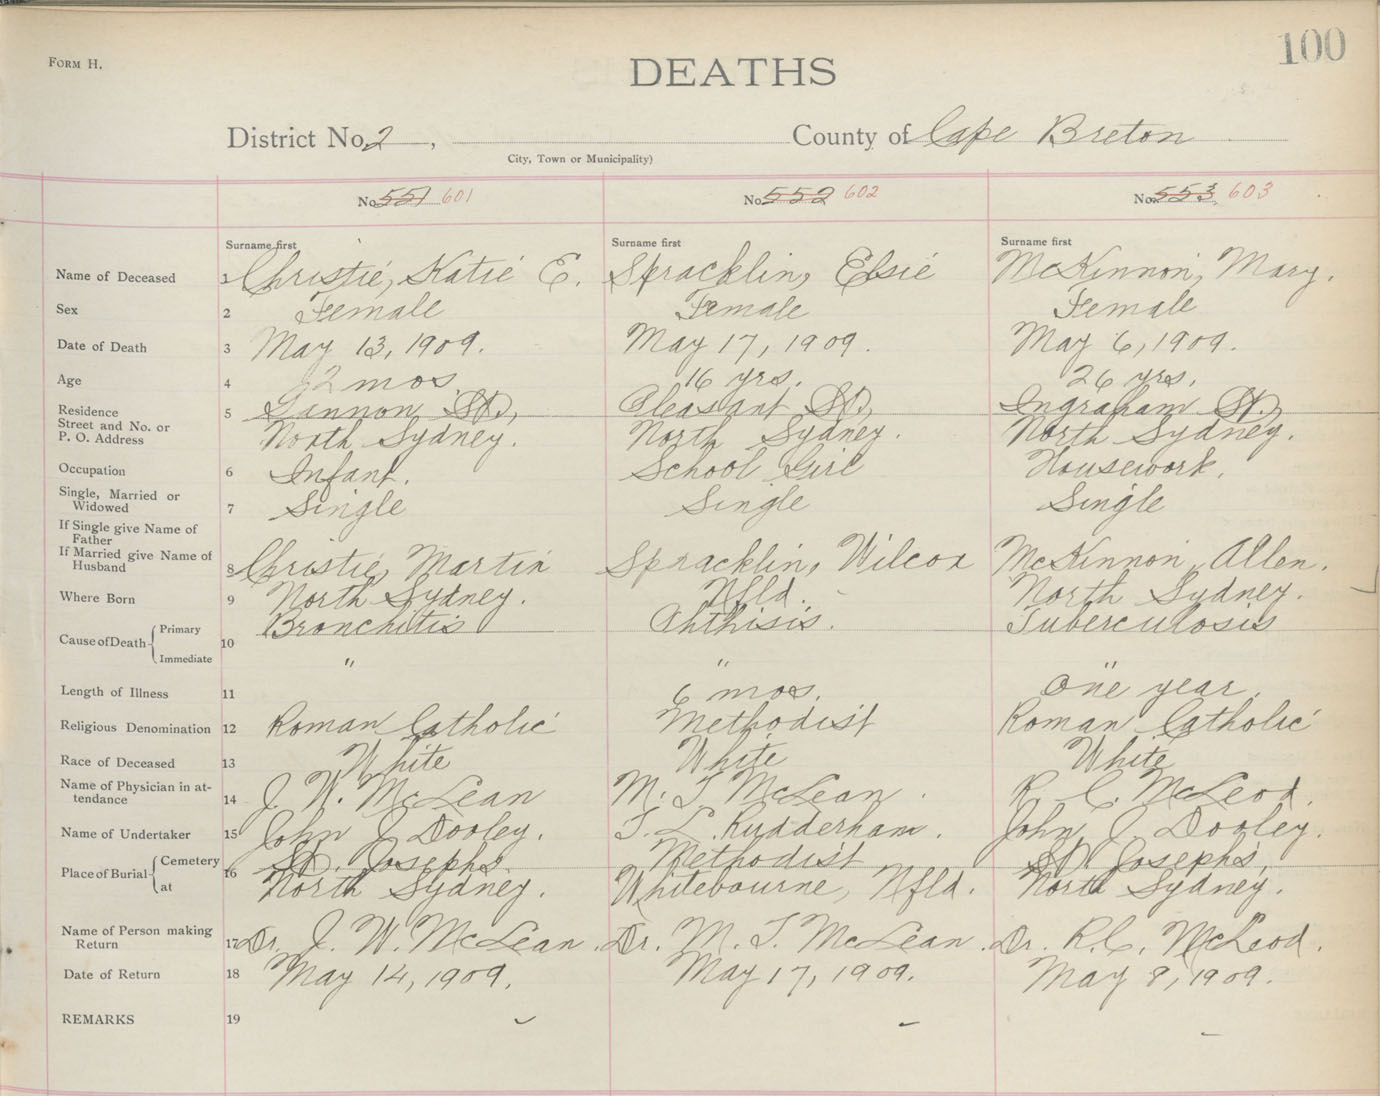 100
FORM H.
DEATHS
District No. 2, County of Cape Breton
City, Town or Municipality)
No. 551 601 No. 552 602 No. 553 603
Surname first Surname first Surname first
Name of Deceased 1 Christie, Katie E. Spracklin, Elsie McKinnon, Mary.
Sex 2 Female Female Female
Date of Death 3 May 13, 1909. May 17, 1909. May 6, 1909.
Age 4 2 mos 16 yrs. 26 yrs.
Residence 5 St., Pleasant St., Ingraham St.,
Street and No. or
P. O. Address North Sydney. North Sydney. North Sydney.
Occupation 6 Infant. School Girl Housework.
Single, Married or
Widowed 7 Single Single Single
If Single give Name of
Father
If Married give Name of
Husband 8 Christie, Martin Spracklin, Wilcox McKinnon, Allen.
Where Born 9 North Sydney. Nfld. North Sydney.
Cause of Death Primary 10 Bronchitis Phthisis. Tuberculosis
Immediate " " "
Length of Illness 11 6 mos. One year.
Religious Denomination 12 Roman Catholic Methodist Roman Catholic
Race of Deceased 13 White White White
Name of Physician in at-
tendance 14 J. W. McLean M. T. McLean. R. C. McLeod.
Name of Undertaker 15 John J Dooley. T. L. Rudderham. John J. Dooley.
Place of Burial Cemetery 16 St. Josephs Methodist St. Joseph's,
at North Sydney. Whitebourne, Nfld. North Sydney.
Name of Person making
Return 17 Dr. J. W. McLean. Dr. M. T. McLean. Dr. R. C. McLeod.
Date of Return 18 May 14, 1909. May 17, 1909. May 8, 1909.
REMARKS 19